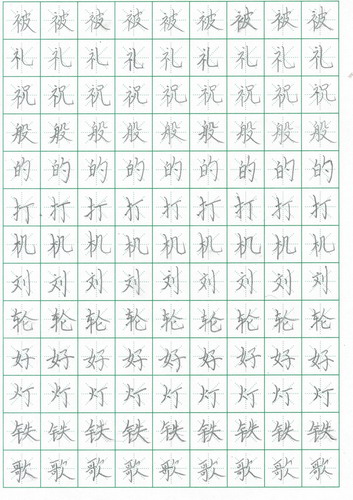 被被被被被被被被被
礼礼礼礼礼礼礼礼礼
祝祝祝祝祝祝祝祝祝
般般般般般般般般般
的的的的的的的的的
打打打打打打打打打
机机机机机机机机机
刘刘刘刘刘刘刘刘刘
轮轮轮轮轮轮轮轮轮
好好好好好好好好好
灯灯灯灯灯灯灯灯灯
铁铁铁铁铁铁铁铁铁
歌歌歌歌歌歌歌歌歌